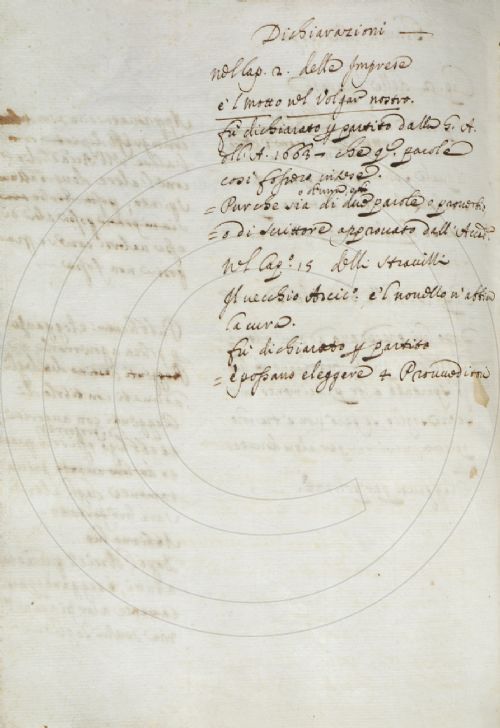 Dichiarazioni
nel Cap. 2. delle Imprese
e 'l motto nel Volgar nostro.
fù dichiarato p partito dalla G. A.
all. A. 1663 che q.e parole
così fossero intese.
o al più q.tro
= Purche sia di due parole o proverbi,
= o di scrittore approvato dall'Accad.a
Nel Cap.o 15 delli Stravizzi
Il vecchio Arcic.o e 'l novello n'abbia
la cura.
fù dichiarato p partito
= e possano eleggere 4 Provveditori